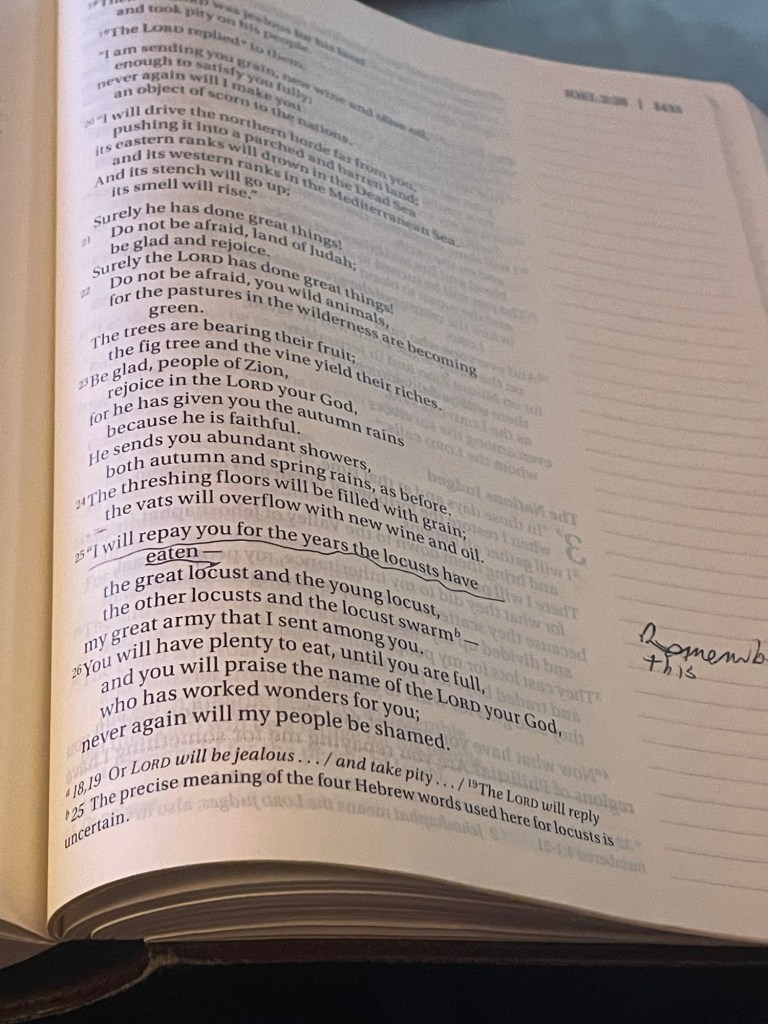 was jealous for his land
and took pity on his people.
¹⁹The LORD replied ᵃ to them:
"I am sending you grain, new wine and olive oil,
enough to satisfy you fully;
never again will I make you
an object of scorn to the nations.
²⁰"I will drive the northern horde far from you,
pushing it into a parched and barren land;
its eastern ranks will drown in the Dead Sea
and its western ranks in the Mediterranean Sea.
And its stench will go up;
its smell will rise."
Surely he has done great things!
²¹ Do not be afraid, land of Judah;
be glad and rejoice.
Surely the LORD has done great things!
²² Do not be afraid, you wild animals,
for the pastures in the wilderness are becoming
green.
The trees are bearing their fruit;
the fig tree and the vine yield their riches.
²³Be glad, people of Zion,
rejoice in the LORD your God,
for he has given you the autumn rains
because he is faithful.
He sends you abundant showers,
both autumn and spring rains, as before.
²⁴The threshing floors will be filled with grain;
the vats will overflow with new wine and oil.
²⁵"I will repay you for the years the locusts have
eaten—
the great locust and the young locust,
the other locusts and the locust swarmᵇ—
my great army that I sent among you.
²⁶You will have plenty to eat, until you are full,
and you will praise the name of the LORD your God,
who has worked wonders for you;
never again will my people be shamed.
ᵃ 18,19 Or LORD will be jealous . . . / and take pity . . . / ¹⁹The LORD will reply
ᵇ 25 The precise meaning of the four Hebrew words used here for locusts is
uncertain.
JOEL 2:26 | 1433
Rememb
this